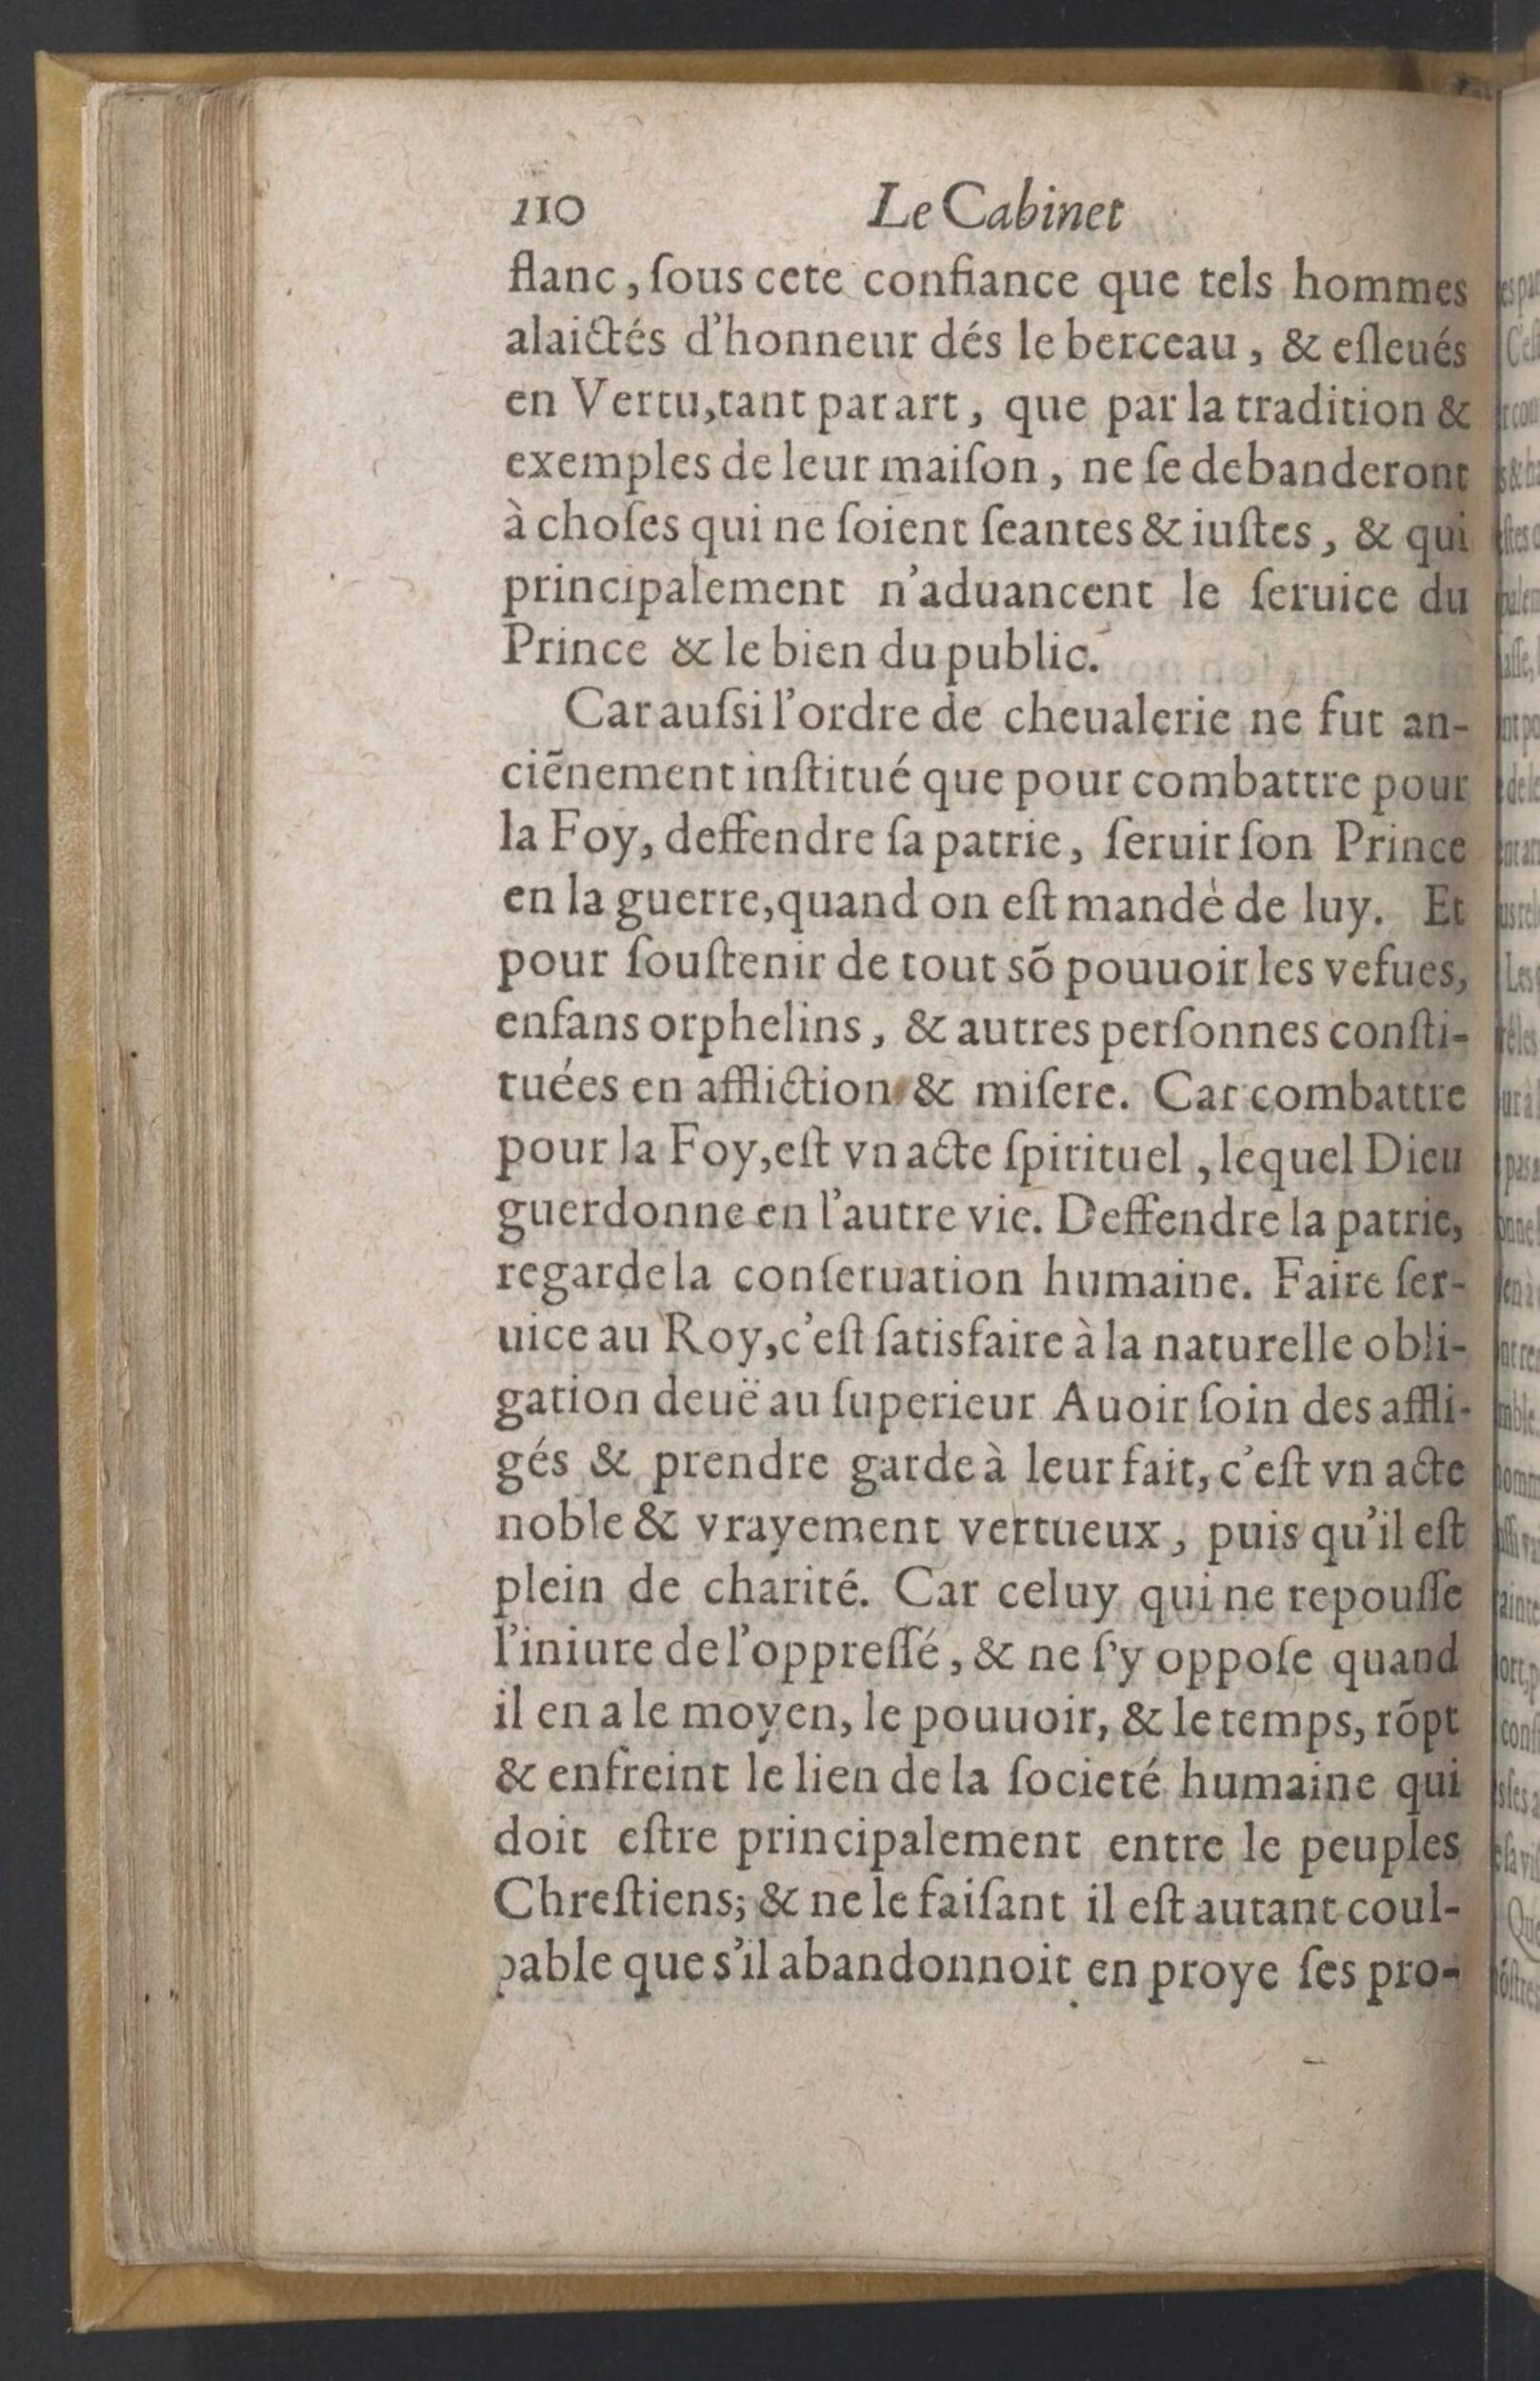 110 Le Cabinet
flanc, ſous cete confiance que tels hommes
alaictés d'honneur dés le berceau, & eſleués
en Vertu, tant par art, que par la tradition &
exemples de leur maiſon, ne ſe debanderont
à choſes qui ne ſoient ſeantes & iuſtes, & qui
principalement n'aduancent le ſeruice du
Prince & le bien du public.
Car auſsi l'ordre de cheualerie ne fut an-
ciẽnement inſtitué que pour combattre pour
la Foy, deffendre ſa patrie, ſeruir ſon Prince
en la guerre, quand on eſt mandè de luy. Et
pour ſouſtenir de tout sõ pouuoir les vefues,
enfans orphelins, & autres perſonnes conſti-
tuées en affliction & miſere. Car combattre
pour la Foy, eſt vn acte ſpirituel, lequel Dieu
guerdonne en l'autre vie. Deffendre la patrie,
regarde la conſeruation humaine. Faire ſer-
uice au Roy, c'eſt ſatisfaire à la naturelle obli-
gation deuë au ſuperieur Auoir ſoin des affli-
gés & prendre garde à leur fait, c'eſt vn acte
noble & vrayement vertueux, puis qu'il eſt
plein de charité. Car celuy qui ne repouſſe
l'iniure de l'oppreſſé, & ne ſ'y oppoſe quand
il en a le moyen, le pouuoir, & le temps, rõpt
& enfreint le lien de la ſocieté humaine qui
doit eſtre principalement entre le peuples
Chreſtiens; & ne le faiſant il eſt autant coul-
pable que s'il abandonnoit en proye ſes pro-